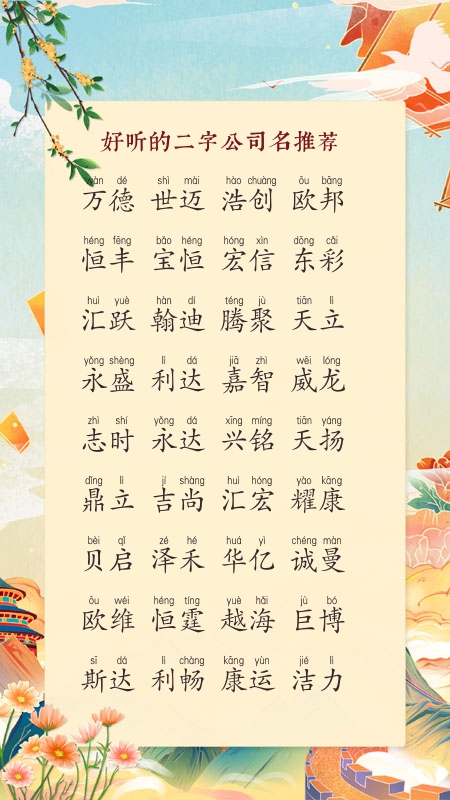 好听的二字公司名推荐
wàn dé shì mài hào chuàng ōu bāng
万德 世迈 浩创 欧邦
héng fēng bǎo héng hóng xìn dōng cǎi
恒丰 宝恒 宏信 东彩
huì yuè hàn dí téng jù tiān lì
汇跃 翰迪 腾聚 天立
yǒng shèng lì dá jiā zhì wēi lóng
永盛 利达 嘉智 威龙
zhì shí yǒng dá xīng míng tiān yáng
志时 永达 兴铭 天扬
dǐng lì jí shàng huì hóng yào kāng
鼎立 吉尚 汇宏 耀康
bèi qǐ zé hé huá yì chéng màn
贝启 泽禾 华亿 诚曼
ōu wéi héng tíng yuè hǎi jù bó
欧维 恒霆 越海 巨博
sī dá lì chàng kāng yùn jié lì
斯达 利畅 康运 洁力